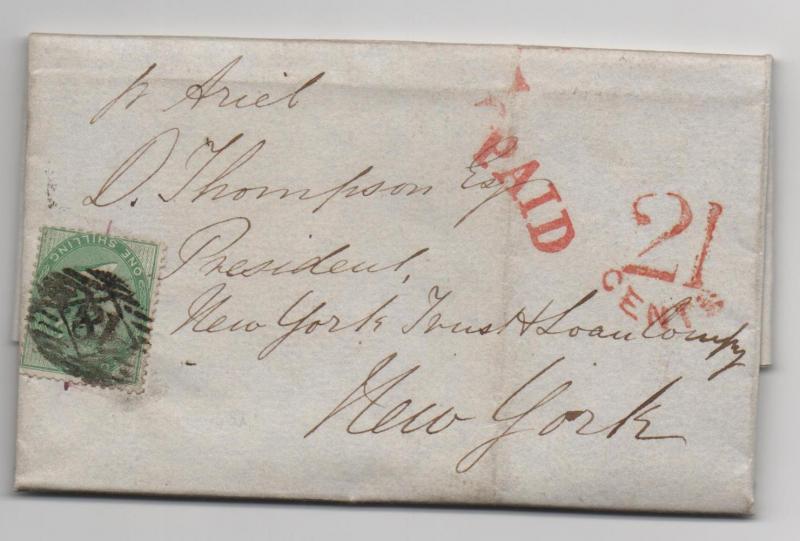 pr Ariel
D. Thompson Esq
President,
New York Trust & Loan Compy
New York
PAID
21
CENTS
ONE SHILLING